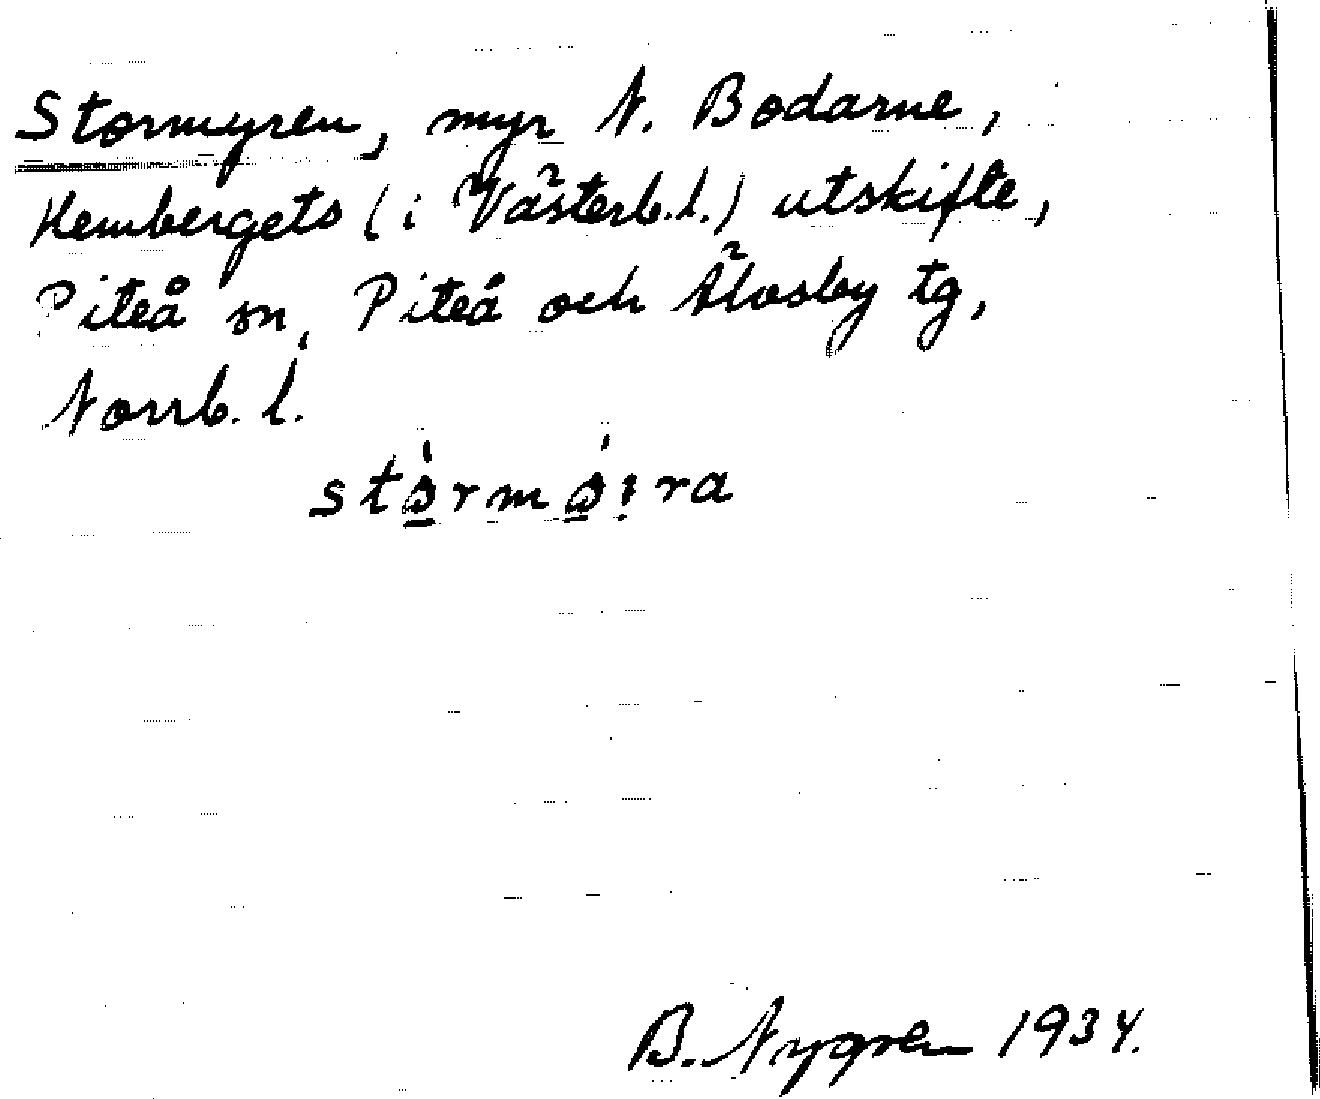 Stormyren, myr N. Bodarne,
Hembergets (i Västerb.l.) utskifte,
Piteå sn, Piteå och Älvsby tg,
Norrb. l.
stø̀rmø̀ıra
B. Nygren 1934.